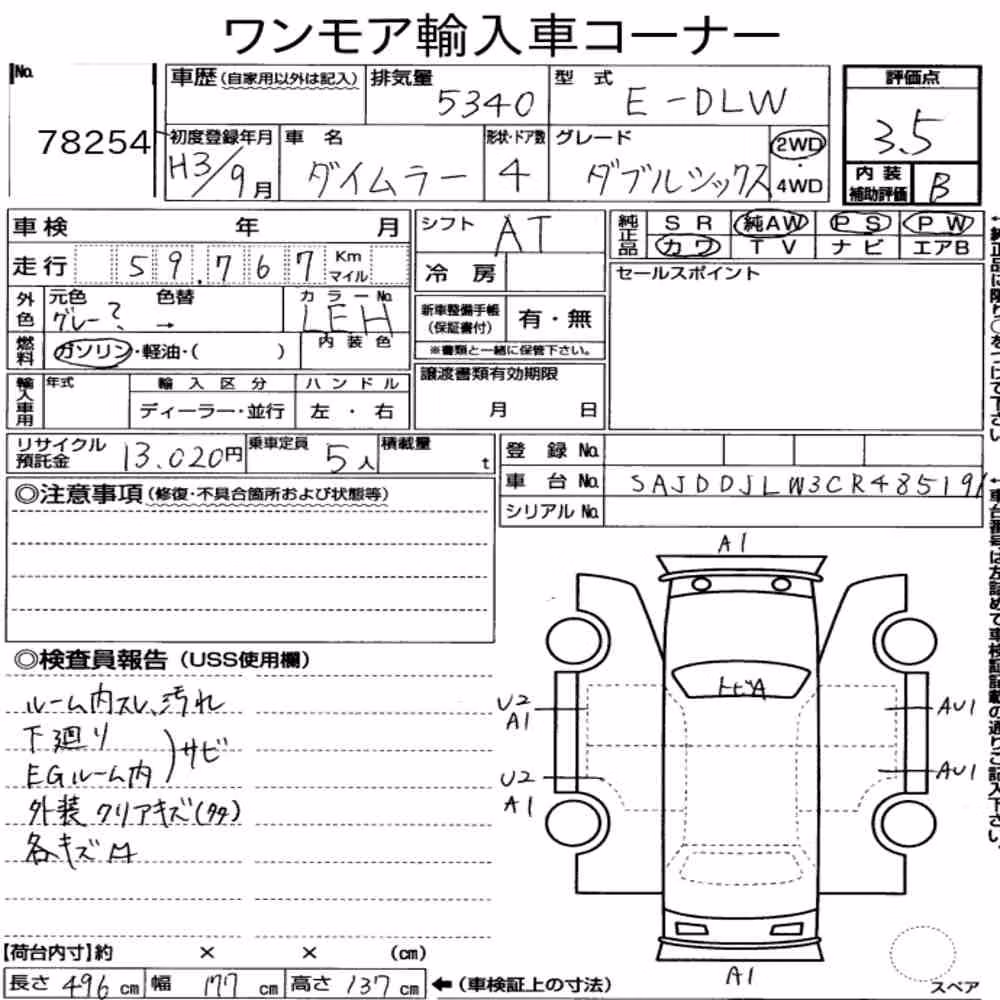 ワンモア輸入車コーナー
No. 78254
車歴(自家用以外は記入) 排気量 5340 型式 E-DLW
評価点 3.5
初度登録年月 H3/9月 車名 ダイムラー 形状・ドア数 4 グレード ダブルシックス 2WD・4WD
内装補助評価 B
車検 年 月
シフト AT
純正品 SR 純AW PS PW
カワ TV ナビ エアB
走行 59,767 Km マイル
冷房
セールスポイント
外色 元色 グレー? 色替 → カラーNo. LEH
新車整備手帳(保証書付) 有・無
※書類と一緒に保管下さい。
燃料 ガソリン・軽油・( ) 内装色
輸入車用 年式 輸入区分 ハンドル
ディーラー・並行 左・右
譲渡書類有効期限
月 日
←純正品に限り○をつけて下さい
リサイクル預託金 13.020円 乗車定員 5人 積載量 t
登録No.
車台No. SAJDDJLW3CR485191
シリアルNo.
←車台番号は左詰めで車検証記載の通りご記入下さい。
◎注意事項(修復・不具合箇所および状態等)
◎検査員報告(USS使用欄)
ルーム内スレ、汚れ
下廻り
EGルーム内 )サビ
外装クリアキズ(タタ)
各キズ
A1
トビA
U2
A1
AU1
U2
A1
AU1
A1
スペア
【荷台内寸】約 × × (cm)
長さ 496 cm 幅 177 cm 高さ 137 cm ←(車検証上の寸法)